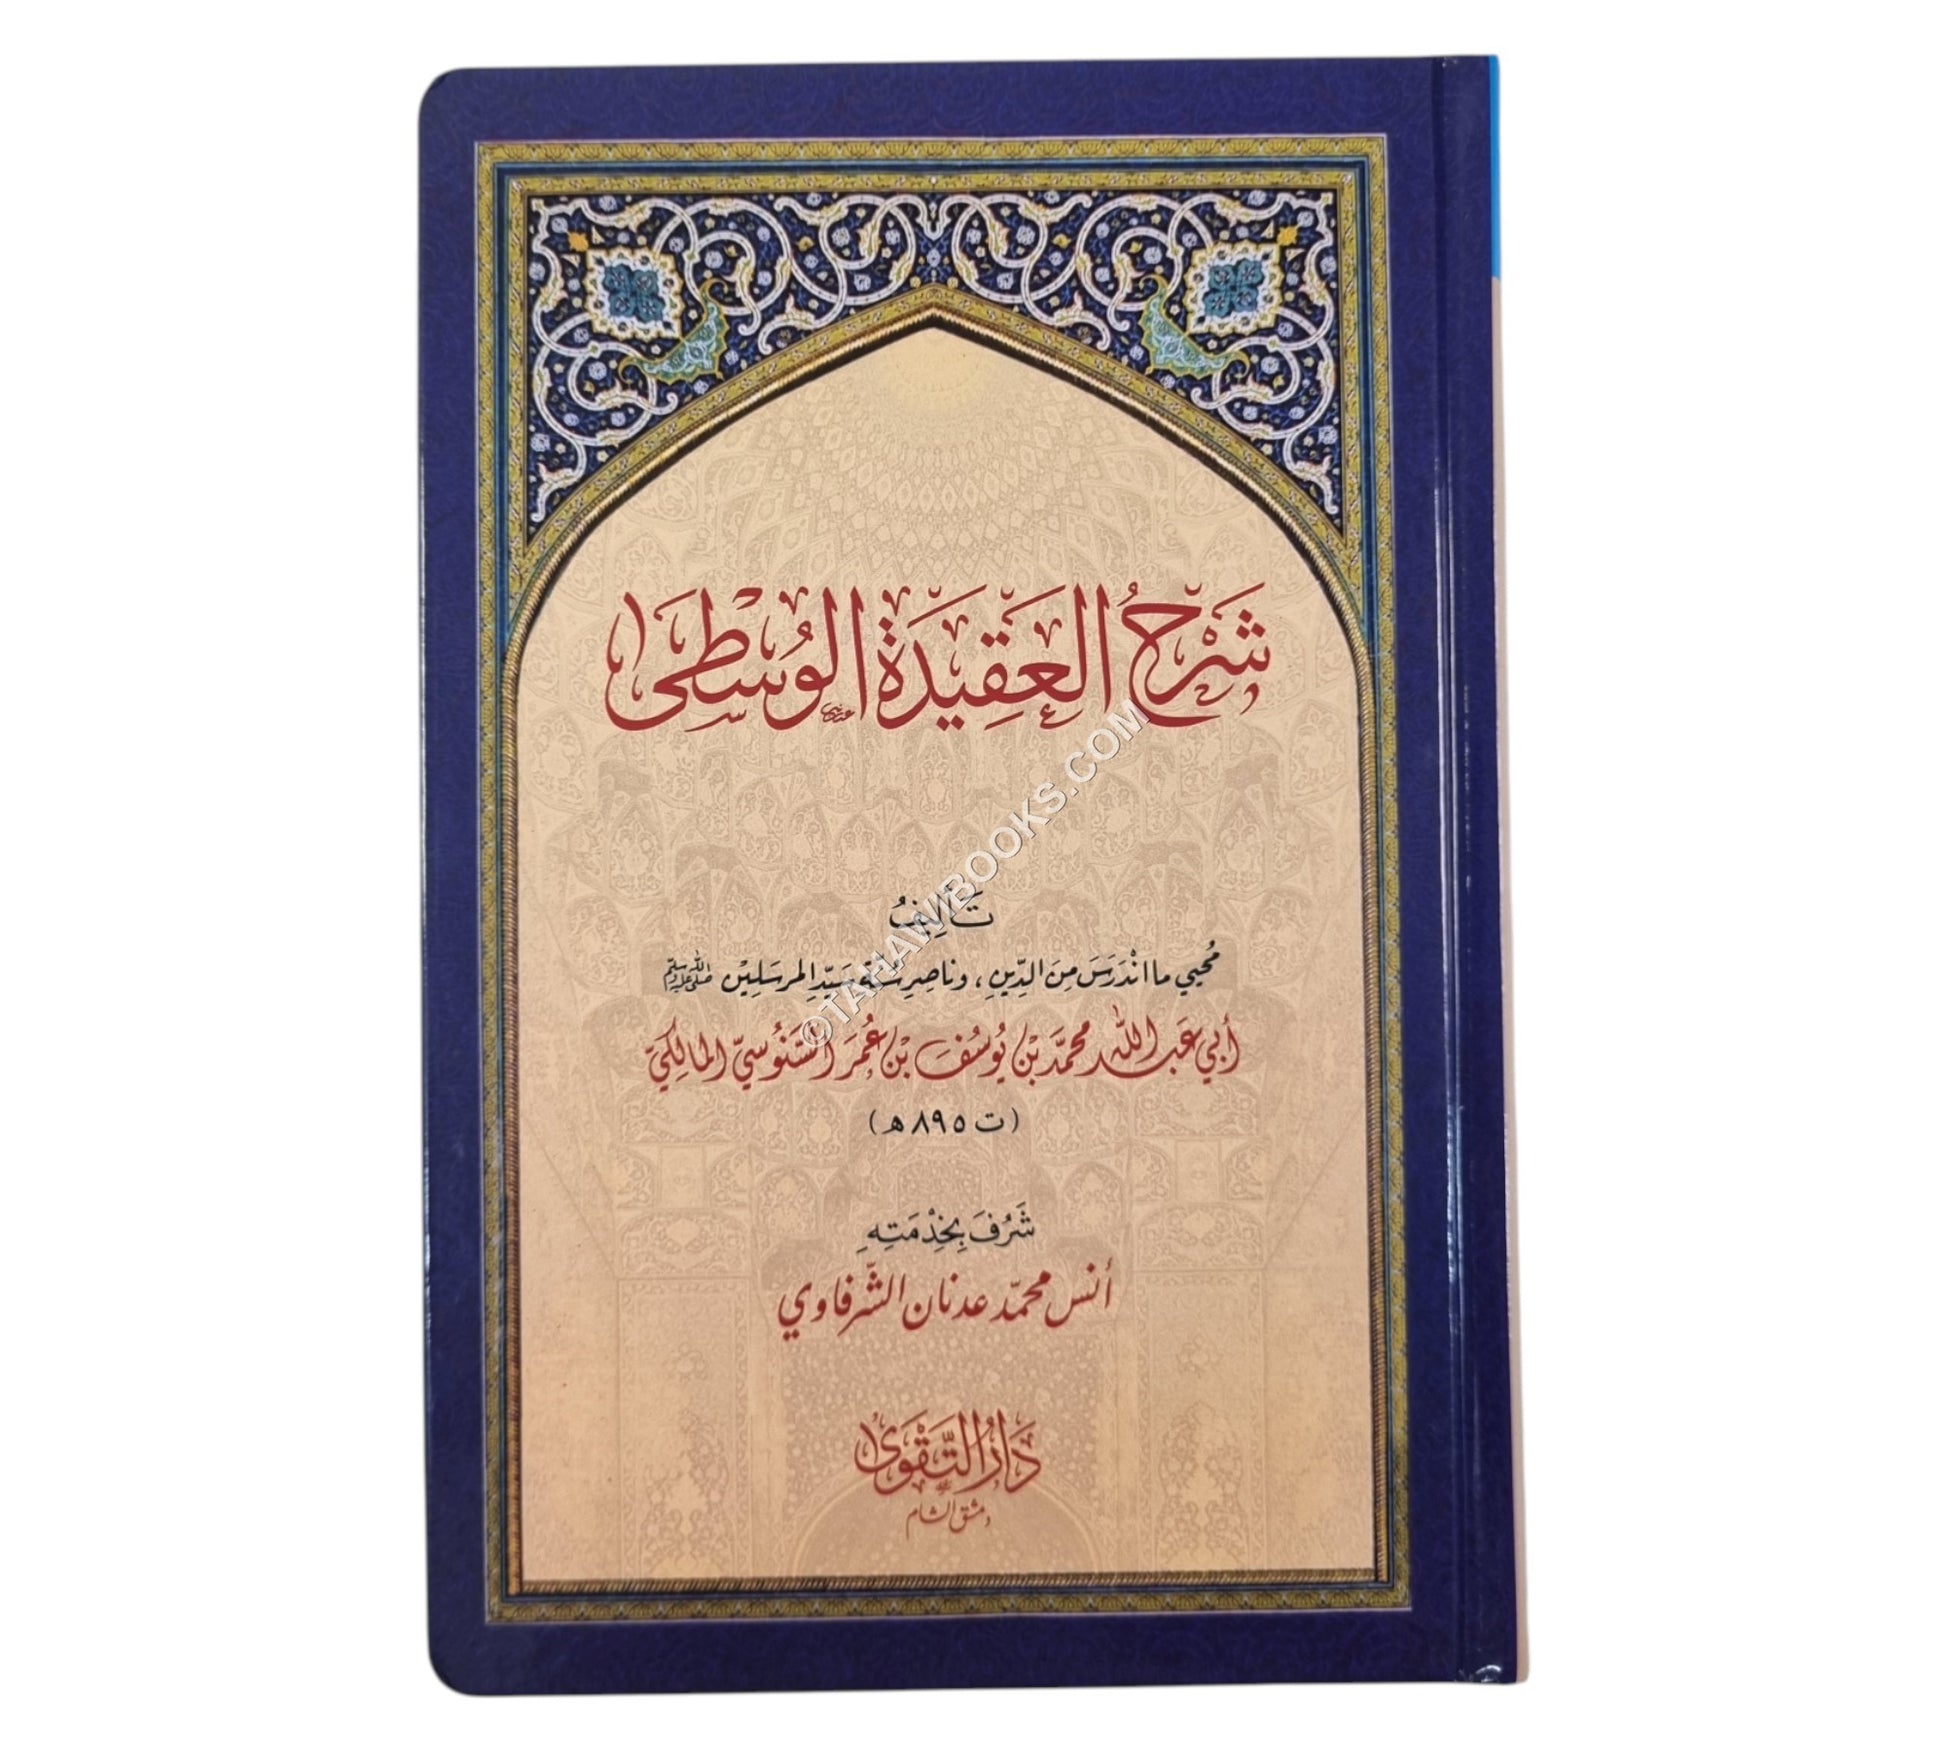 شَرْحُ العَقِيدَةِ الوُسْطَى
تَأليفُ
مُحيي ما انْدَرَسَ مِنَ الدِّينِ ، وناصِرِ سُنَّةِ سَيِّدِ المرسَلِيْنَ ﷺ
أبي عَبد الله محمَّد بْن يُوسُفَ بْن عُمَرَ السَّنُوسيّ المالِكيّ
(ت ٨٩٥ هـ)
شَرُفَ بِخِدْمَتِهِ
أنس محمّد عدنان الشَّرفاوي
دَارُ التَّقْوَى
دمشق الشام
©TAHAWIBOOKS.COM